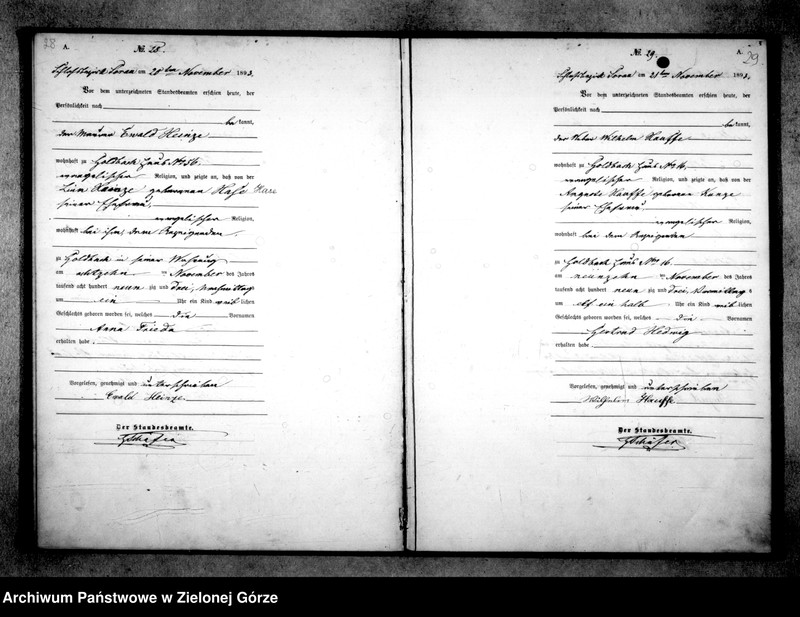 28
A.
№ 28.
Schloßbezirk Sorau am 20ten November 1893.
Vor dem unterzeichneten Standesbeamten erschien heute, der
Persönlichkeit nach
be kannt,
der Maurer Ewald Heinze
wohnhaft zu Goldbach Haus No 56
evangelischer Religion, und zeigte an, daß von der
Heinze geborenen
seiner Ehefrau,
evangelischer Religion,
wohnhaft bei ihm, dem
zu Goldbach in seiner Wohnung
am achtzehn ten November des Jahres
tausend acht hundert neun zig und drei, Nachmittag
um ein Uhr ein Kind weib lichen
Geschlechts geboren worden sei, welches die Vornamen
Anna Frieda
erhalten habe.
Vorgelesen, genehmigt und unterschrieben
Ewald Heinze
Der Standesbeamte.
Schäfer
№ 29.
A.
29
Schloßbezirk Sorau am 21ten November 1893.
Vor dem unterzeichneten Standesbeamten erschien heute, der
Persönlichkeit nach
be kannt,
der Weber Wilhelm Hauffe
wohnhaft zu Goldbach Haus No 16
evangelischer Religion, und zeigte an, daß von der
Auguste Hauffe geborenen Kunze
seiner Ehefrau
evangelischer Religion,
wohnhaft bei dem
zu Goldbach Haus No 16
am neunzehn ten November des Jahres
tausend acht hundert neun zig und drei, Vormittag s
um elf ein halb Uhr ein Kind weib lichen
Geschlechts geboren worden sei, welches die Vornamen
Gertrud Hedwig
erhalten habe
Vorgelesen, genehmigt und unterschrieben
Wilhelm Hauffe
Der Standesbeamte.
Schäfer
Archiwum Państwowe w Zielonej Górze